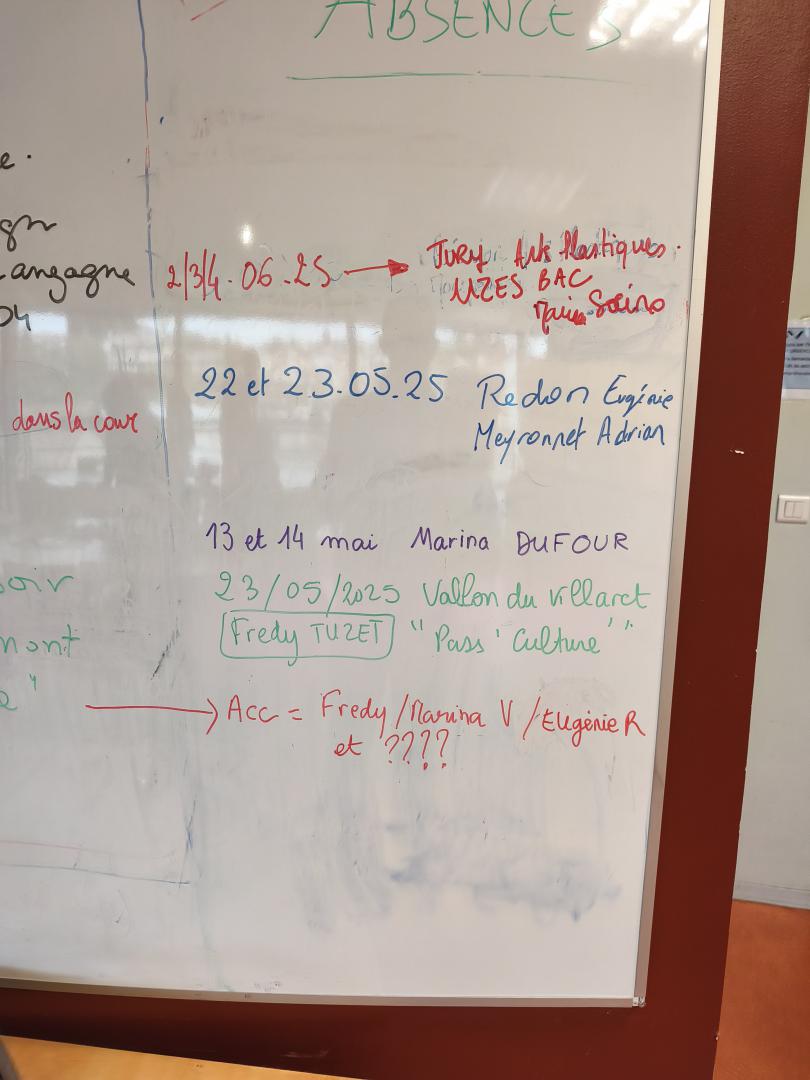 ABSENCES
e.
angagne
04
2/3/4.06.25 → JURY Arts Plastiques.
UZES BAC
22 et 23.05.25 Redon Eugénie
Meyronnet Adrian
dans la cour
13 et 14 mai Marina DUFOUR
oir
23/05/2025 Vallon du villaret
mont
Fredy TUZET "Pass 'Culture'"
e"
→ Acc = Fredy/Marina V/Eugénie R
et ????